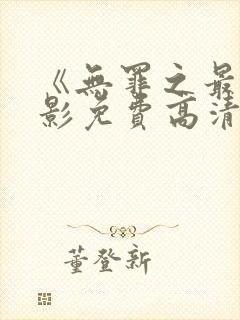 《無罪之最
影免費高清
董登新